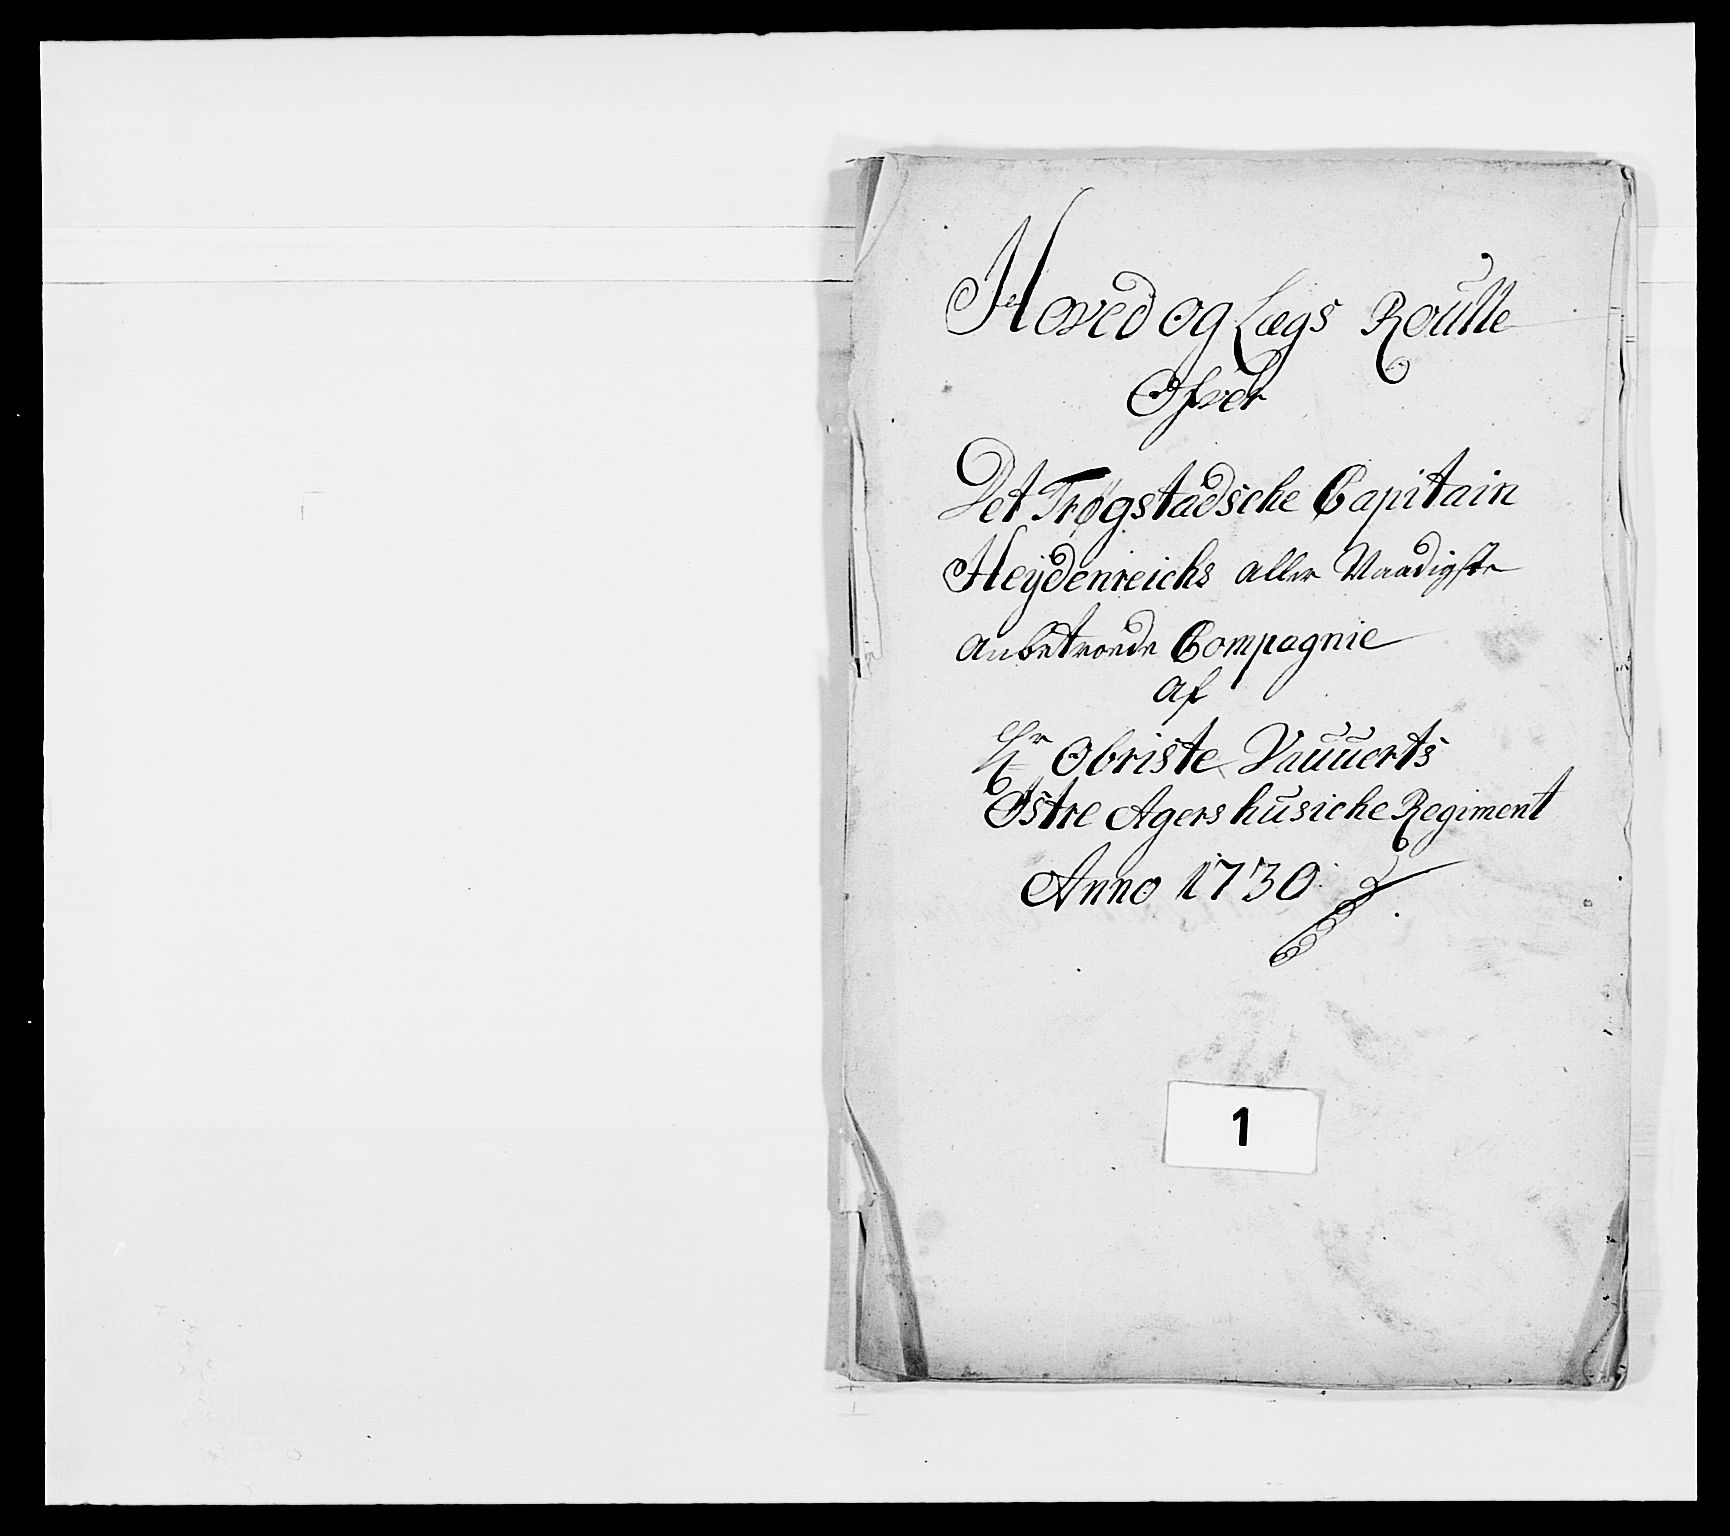 Hoved og Lægs Roulle
Ofver
Det Trøgstadsche Capitain
Heÿdenreichs aller Naadigste
anbetroede Compagnie
af
Hr Obriste Vauuerts
Ostre Agershusiche Regiment
Anno 1730
1